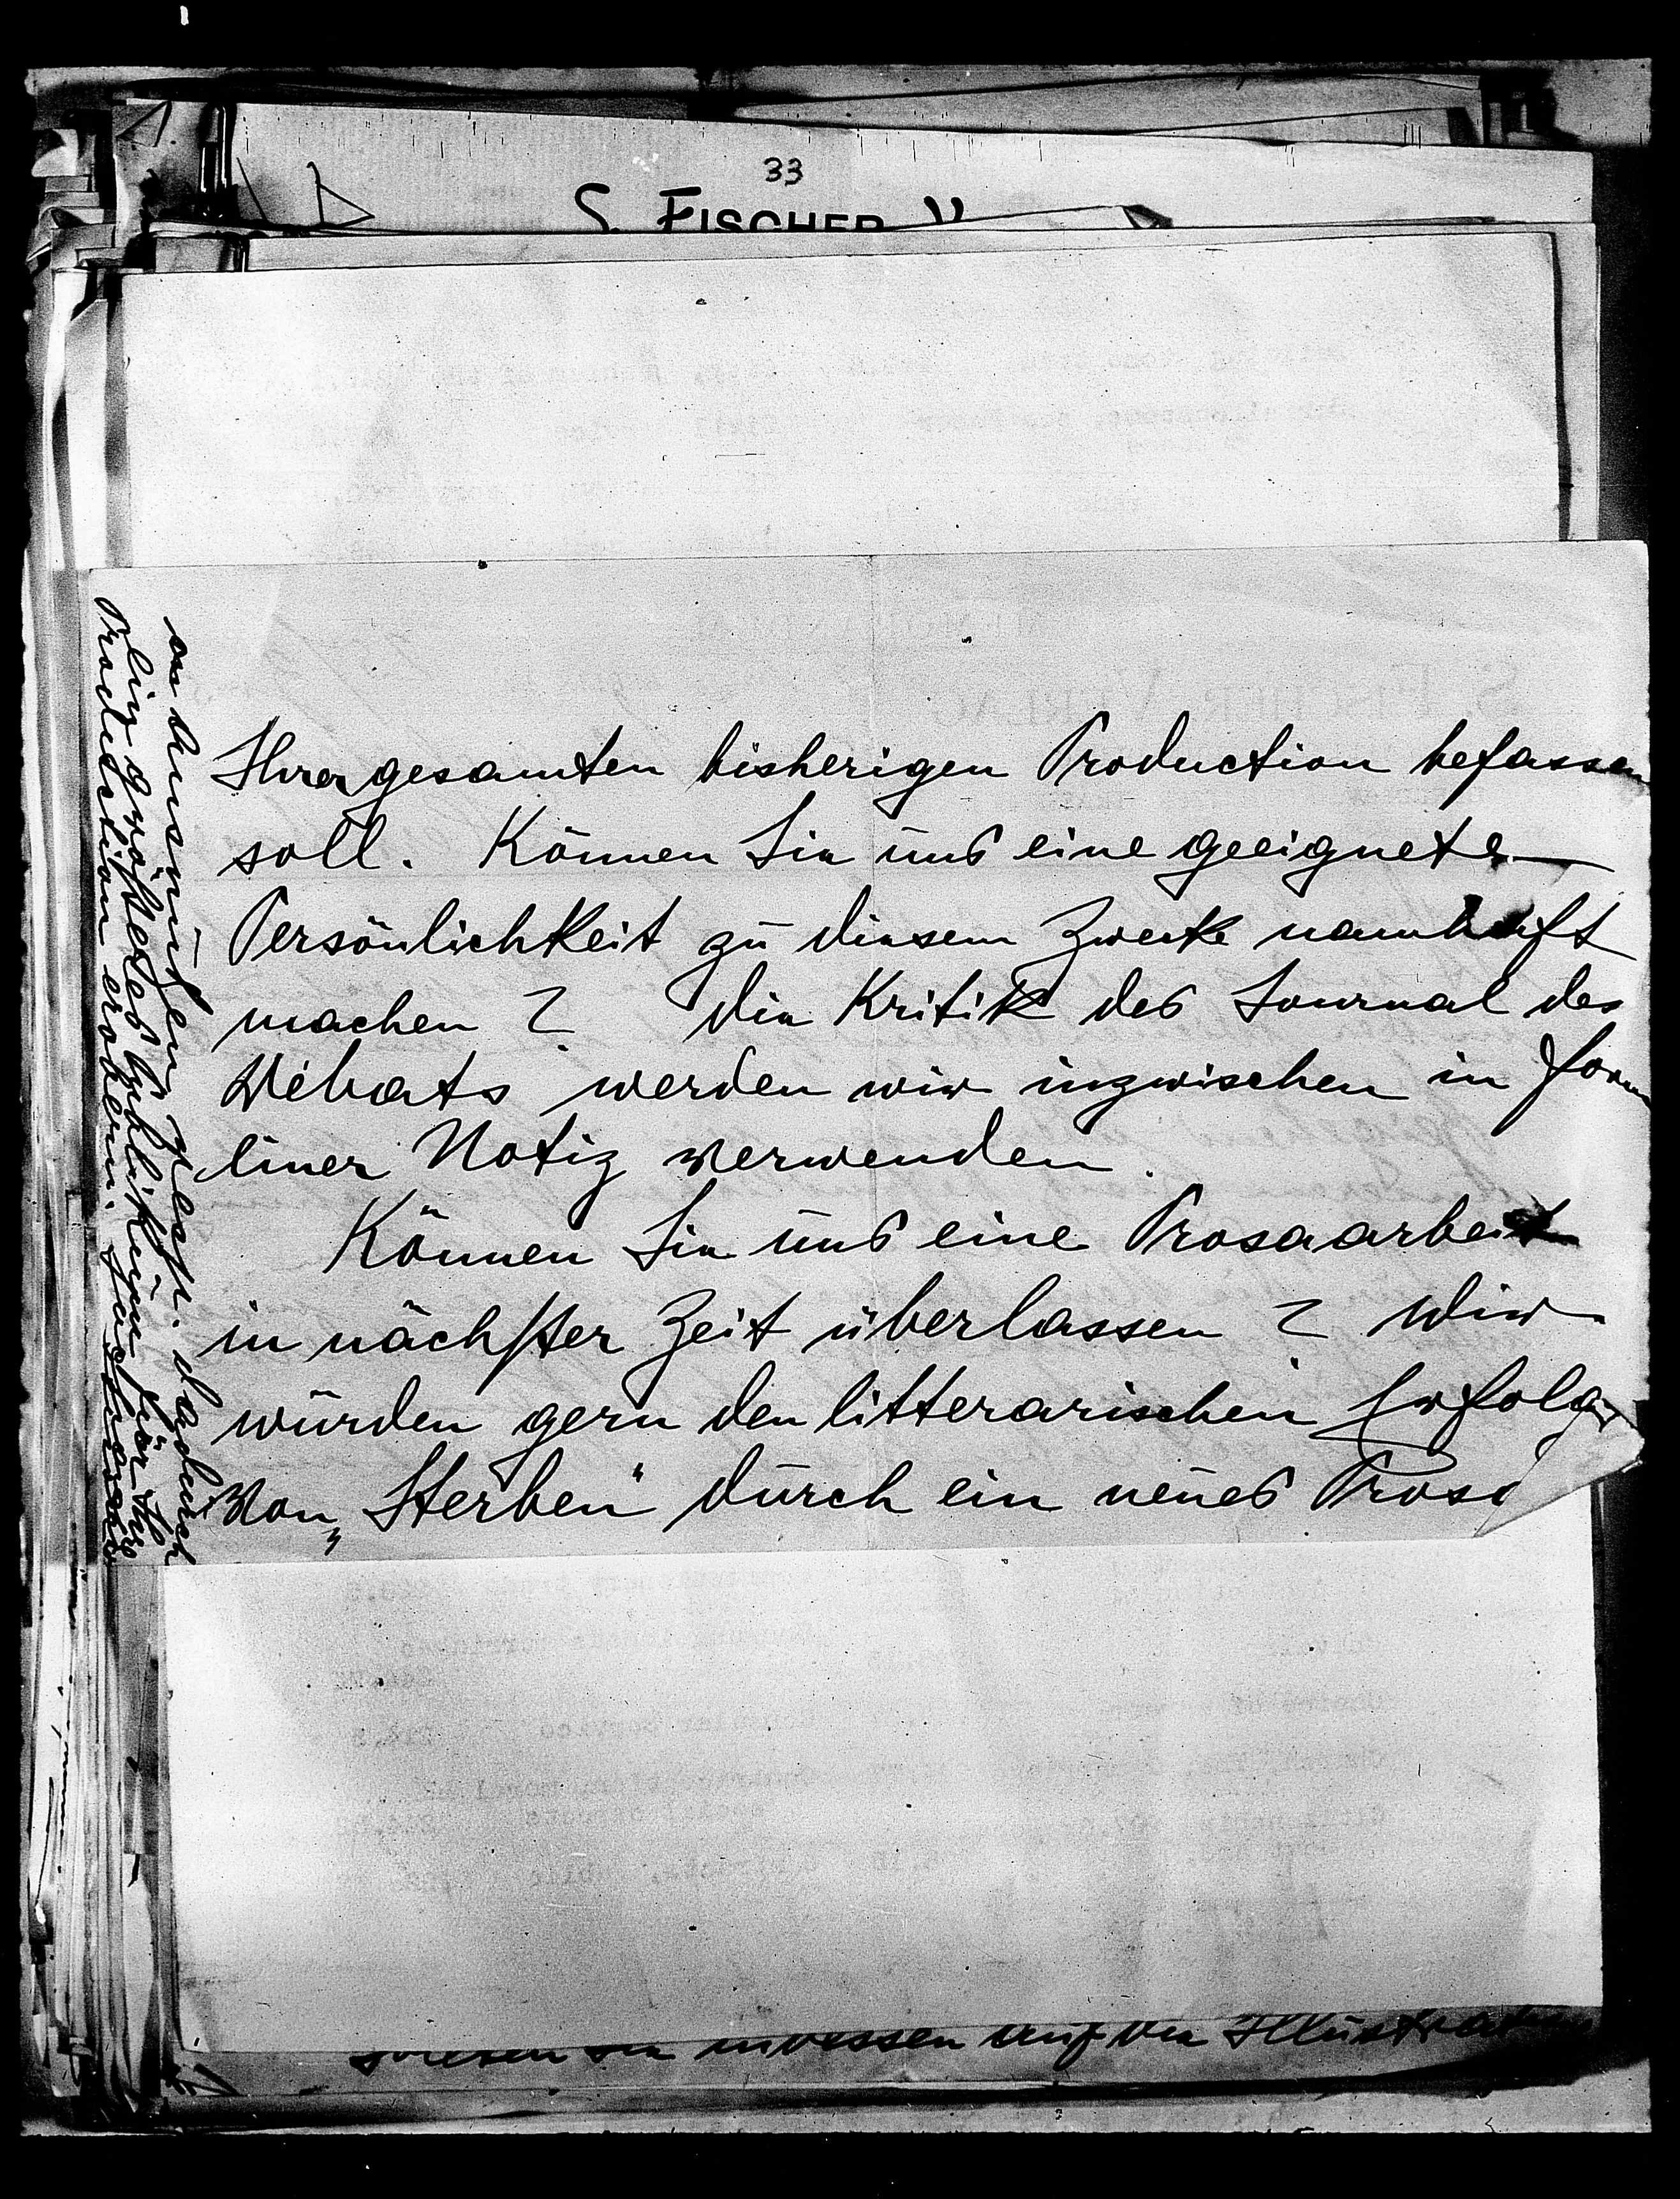 33
S. FISCHER V
Ihrer gesamten bisherigen Production befassen
soll. Können Sie uns eine geeignete
Persönlichkeit zu diesem Zwecke namhaft
machen? Die Kritik des Journal des
Débats werden wir inzwischen in Form
einer Notiz verwenden.
Können Sie uns eine Prosaarbeit
in nächster Zeit überlassen? Wir
würden gern den litterarischen Erfolg
von „Sterben“ durch ein neues Prosa
auszunützen gelesen. dadurch
ein größeres Publikum für Ihre
Production erobern.
indessen auf die Illustration